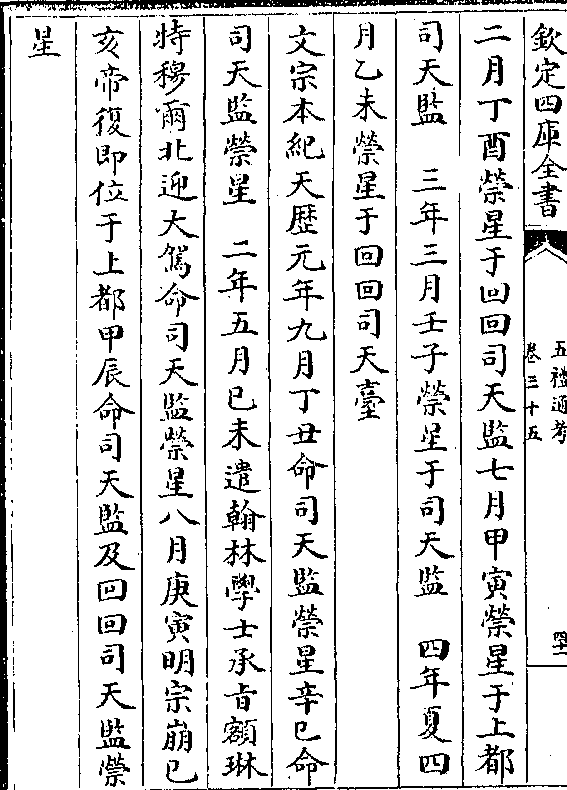 欽定四庫全書
五禮通考
卷三十五
二月丁酉禜星于回回司天監七月甲寅禜星于上都
司天監　三年三月壬子禜星于司天監　四年夏四
月乙未禜星于回回司天臺
文宗本紀天歴元年九月丁丑命司天監禜星辛巳命
司天監禜星　二年五月己未遣翰林學士承旨額琳
特穆爾北迎大駕命司天監禜星八月庚寅明宗崩己
亥帝復即位于上都甲辰命司天監及回回司天監禜
星